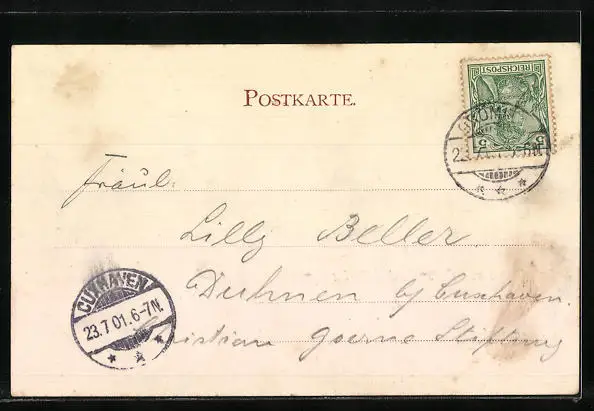 POSTKARTE.
REICHSPOST
5 5
23.7.01.
Fräul:
Lilly Beller.
Duhnen b/ Cuxhaven.
Christian Goerne Stiftung
CUXHAVEN
23.7.01.6-7N.